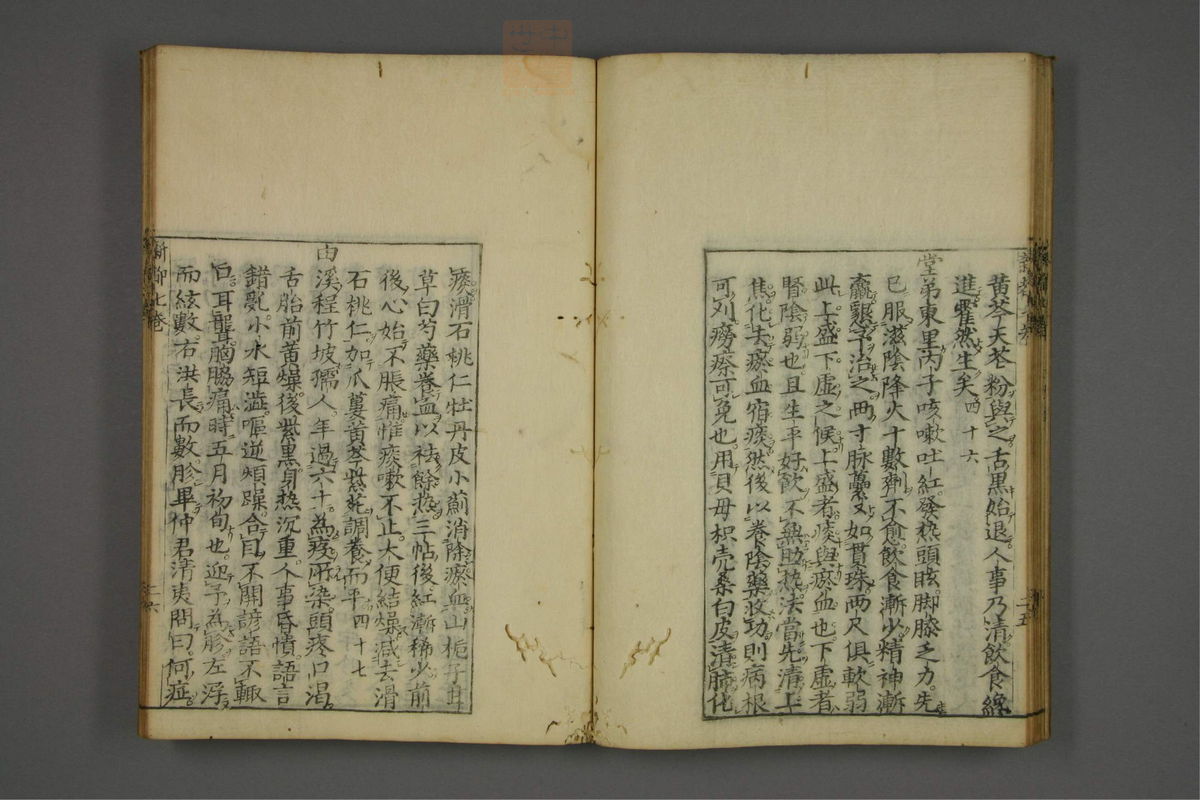 黄芩天花粉與之舌黑始退人事乃清飲食纔
進霍然生矣四十六
堂弟東里丙子咳嗽吐紅發熱頭眩脚膝乏力先
已服滋陰降火十數劑不愈飲食漸少精神漸
羸懇予治之兩寸脉 又如貫珠兩尺俱軟弱
此上盛下虚之候上盛者痰與瘀血也下虚者
腎陰弱也且生平好飲不無助热法當先清上
焦化去瘀血宿痰然後以養陰藥收功則病根
可刈癆瘵可免也用貝母枳壳桑白皮清肺化
痰滑石桃仁牡丹皮小薊消除瘀血山梔子甘
草白芍藥養血以祛餘热三帖後紅漸稀少前
後心始不脹痛惟痰嗽不止大便結燥減去滑
石桃仁加瓜蔞黄芩紫菀調養而平四十七
由溪程竹坡孺人年過六十為疫所染頭疼口渴
舌胎前黄燥後紫黑身热沉重人事昏憒語言
錯亂小水短澁嘔逆煩躁合目不開諺語不輒
口耳聾胸脇痛時五月初旬也迎予為胗左浮
而絃數右洪長而數胗畢仲君清夷問曰何症